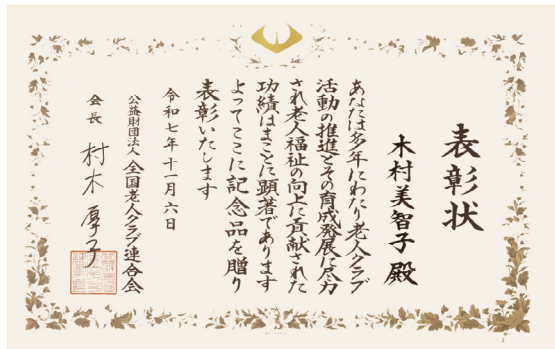 表彰状
木村美智子 殿
あなたは多年にわたり老人クラブ
活動の推進とその育成発展に尽力
され老人福祉の向上に貢献された
功績はまことに顕著であります
よってここに記念品を贈り
表彰いたします
令和七年十一月六日
公益財団法人 全国老人クラブ連合会
会長 村木厚子